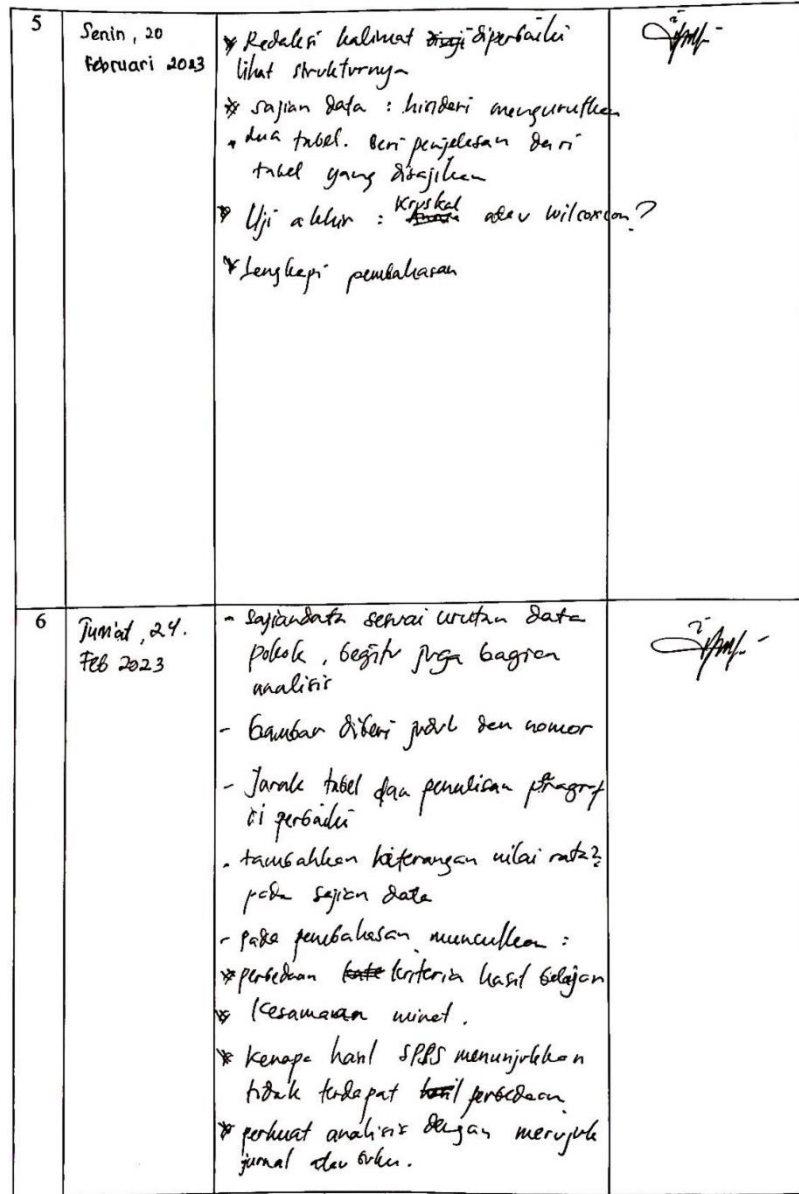 5
Senin, 20
Februari 2023
* Redaksi kalimat disaji diperbaiki
lihat strukturnya
* sajian data : hindari mengurutkan
. dua tabel. Beri penjelasan dari
tabel yang disajikan
* Uji akhir : Kruskal atau wilcoxcon?
* Lengkapi pembahasan
6
Jum'at, 24.
Feb 2023
- Sajian data sesuai urutan data
pokok, begitu juga bagian
analisis
- Gambar diberi judul dan nomor
- Jarak tabel dan penulisan paragraf
di perbaiki
- tambahkan keterangan nilai rata2
pada sajian data
- pada pembahasan munculkan :
* perbedaan kriteria hasil belajar
* Kesamaan minat.
* Kenapa hasil SPSS menunjukkan
tidak terdapat hasil perbedaan
* perkuat analisis dengan merujuk
jurnal atau buku.